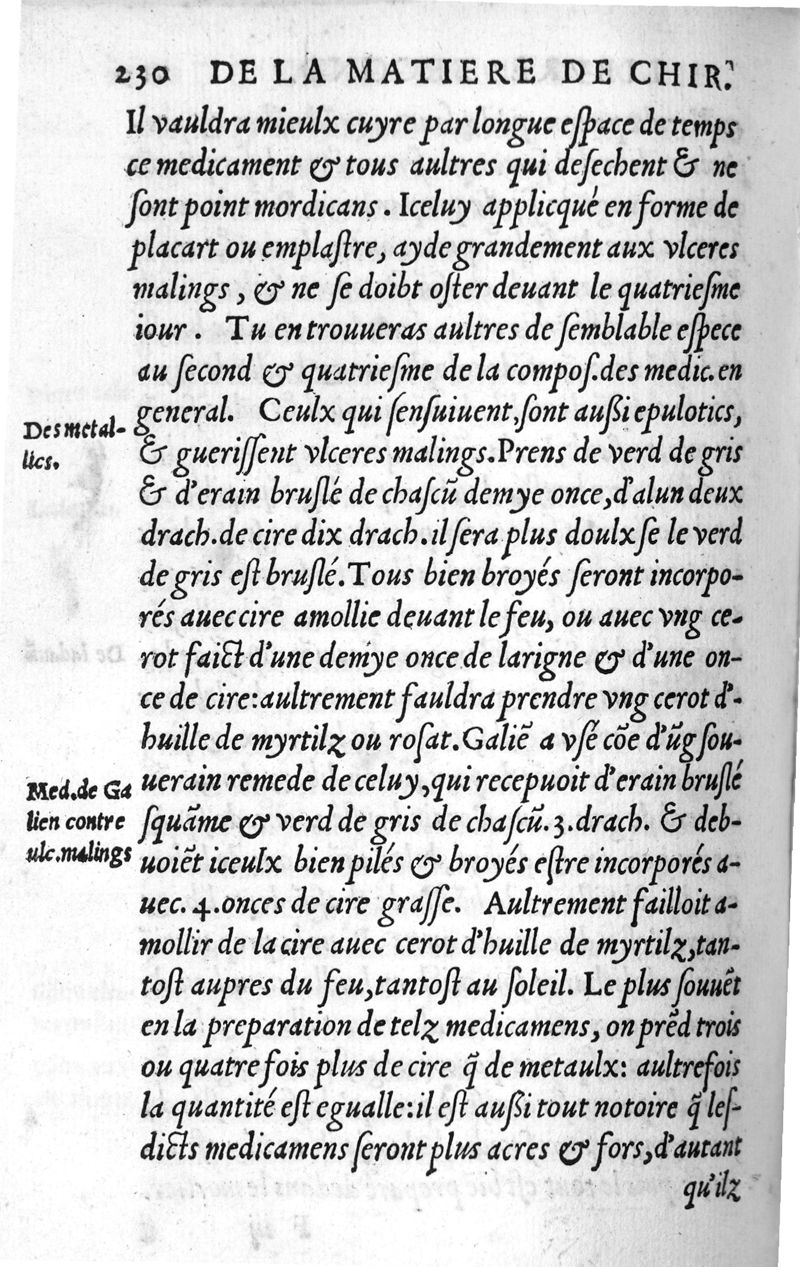 230 DE LA MATIERE DE CHIR.
Il vauldra mieulx cuyre par longue eſpace de temps
ce medicament & tous aultres qui deſechent & ne
ſont point mordicans. Iceluy applicqué en forme de
placart ou emplaſtre, ayde grandement aux vlceres
malings, & ne ſe doibt oſter deuant le quatrieſme
iour. Tu en trouueras aultres de ſemblable eſpece
au ſecond & quatrieſme de la compoſ. des medic. en
general. Ceulx qui ſenſuiuent, ſont auſsi epulotics,
Des metal-
lics.
& gueriſſent vlceres malings. Prens de verd de gris
& d'erain bruſlé de chaſcũ demye once, d'alun deux
drach. de cire dix drach. il ſera plus doulx ſe le verd
de gris eſt bruſlé. Tous bien broyés ſeront incorpo-
rés auec cire amollie deuant le feu, ou auec vng ce-
rot faict d'une demye once de larigne & d'une on-
ce de cire: aultrement fauldra prendre vng cerot d'-
huille de myrtilz ou roſat. Galiẽ a vſé cõe d'ũg ſou-
uerain remede de celuy, qui recepuoit d'erain bruſlé
Med. de Ga
lien contre
ulc. malings
ſquãme & verd de gris de chaſcũ. 3. drach. & deb-
uoiẽt iceulx bien pilés & broyés eſtre incorporés a-
uec. 4. onces de cire graſſe. Aultrement failloit a-
mollir de la cire auec cerot d'huille de myrtilz, tan-
toſt aupres du feu, tantoſt au ſoleil. Le plus ſouuẽt
en la preparation de telz medicamens, on prẽd trois
ou quatre fois plus de cire q̃ de metaulx: aultrefois
la quantité eſt egualle: il eſt auſsi tout notoire q̃ leſ-
dicts medicamens ſeront plus acres & fors, d'autant
qu'ilz